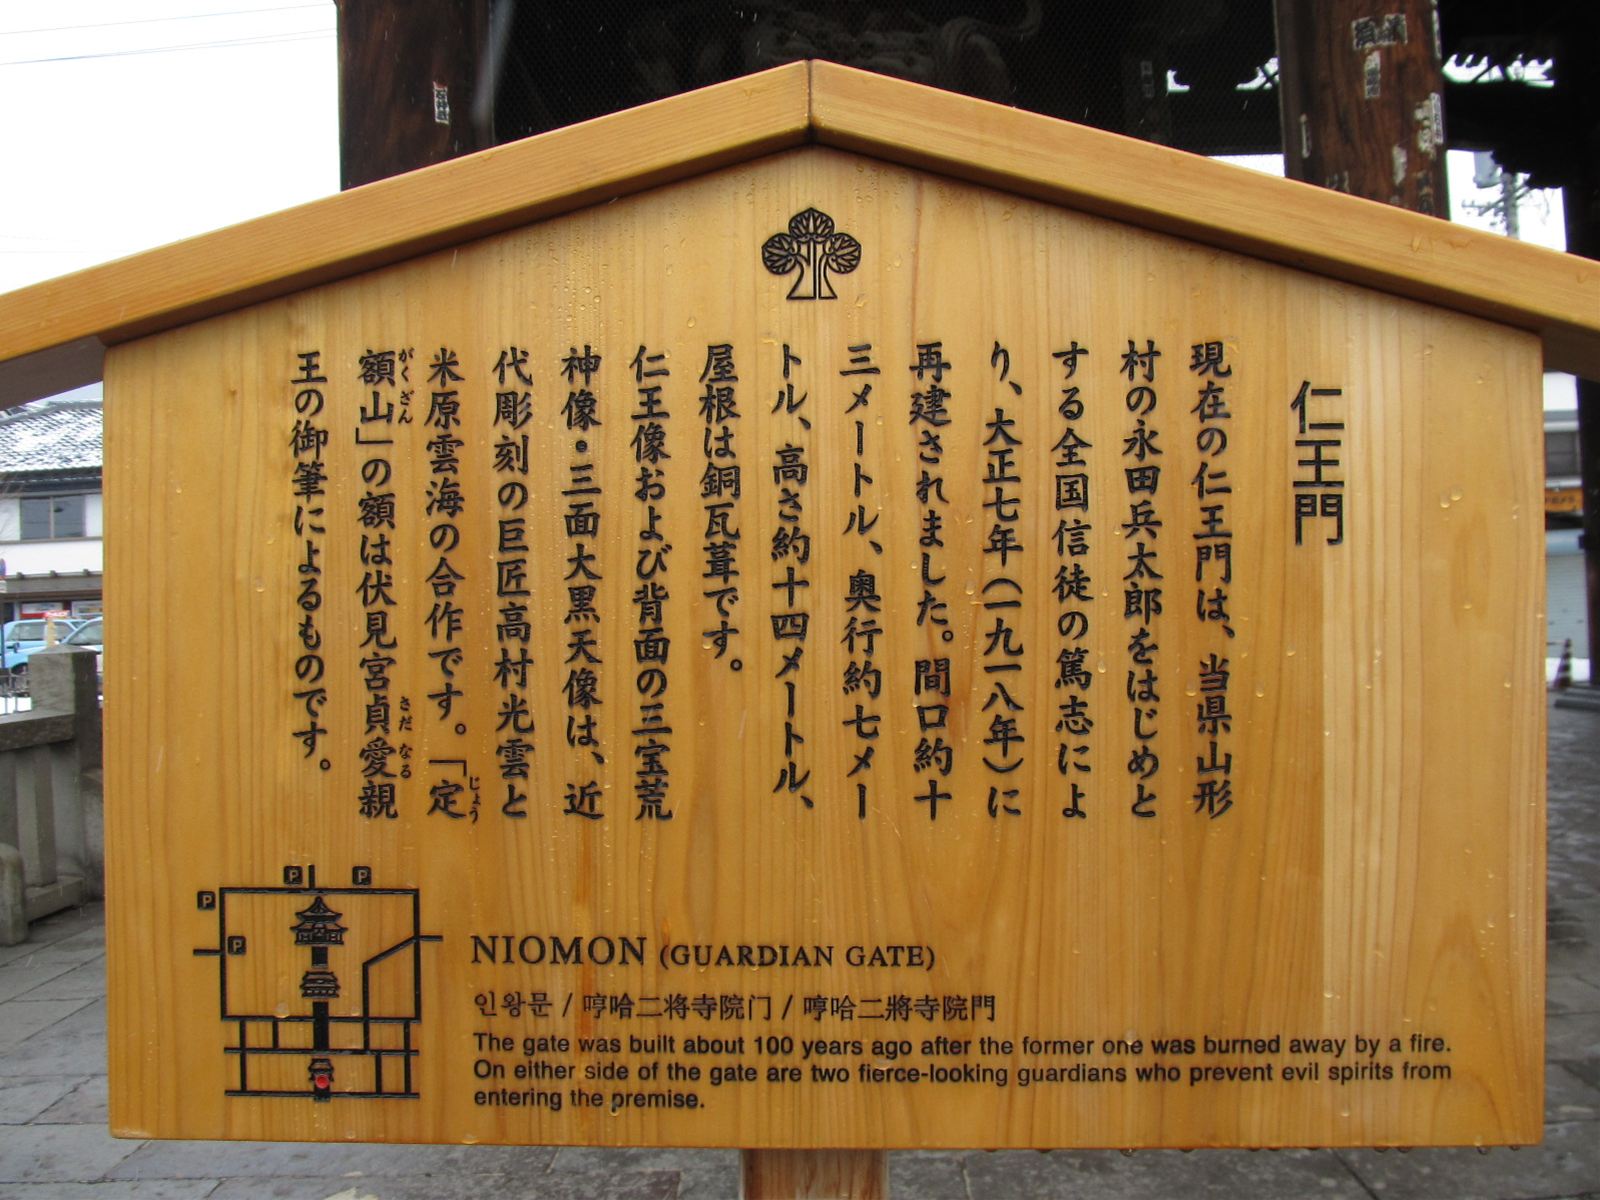 仁王門
現在の仁王門は、当県山形
村の永田兵太郎をはじめと
する全国信徒の篤志によ
り、大正七年(一九一八年)に
再建されました。間口約十
三メートル、奥行約七メー
トル、高さ約十四メートル、
屋根は銅瓦葺です。
仁王像および背面の三宝荒
神像・三面大黒天像は、近
代彫刻の巨匠高村光雲と
米原雲海の合作です。「定
じょう
額山」の額は伏見宮貞愛親
がくざん
さだなる
王の御筆によるものです。
P
P
P
P
NIOMON (GUARDIAN GATE)
인왕문 / 哼哈二将寺院门 / 哼哈二將寺院門
The gate was built about 100 years ago after the former one was burned away by a fire.
On either side of the gate are two fierce-looking guardians who prevent evil spirits from
entering the premise.